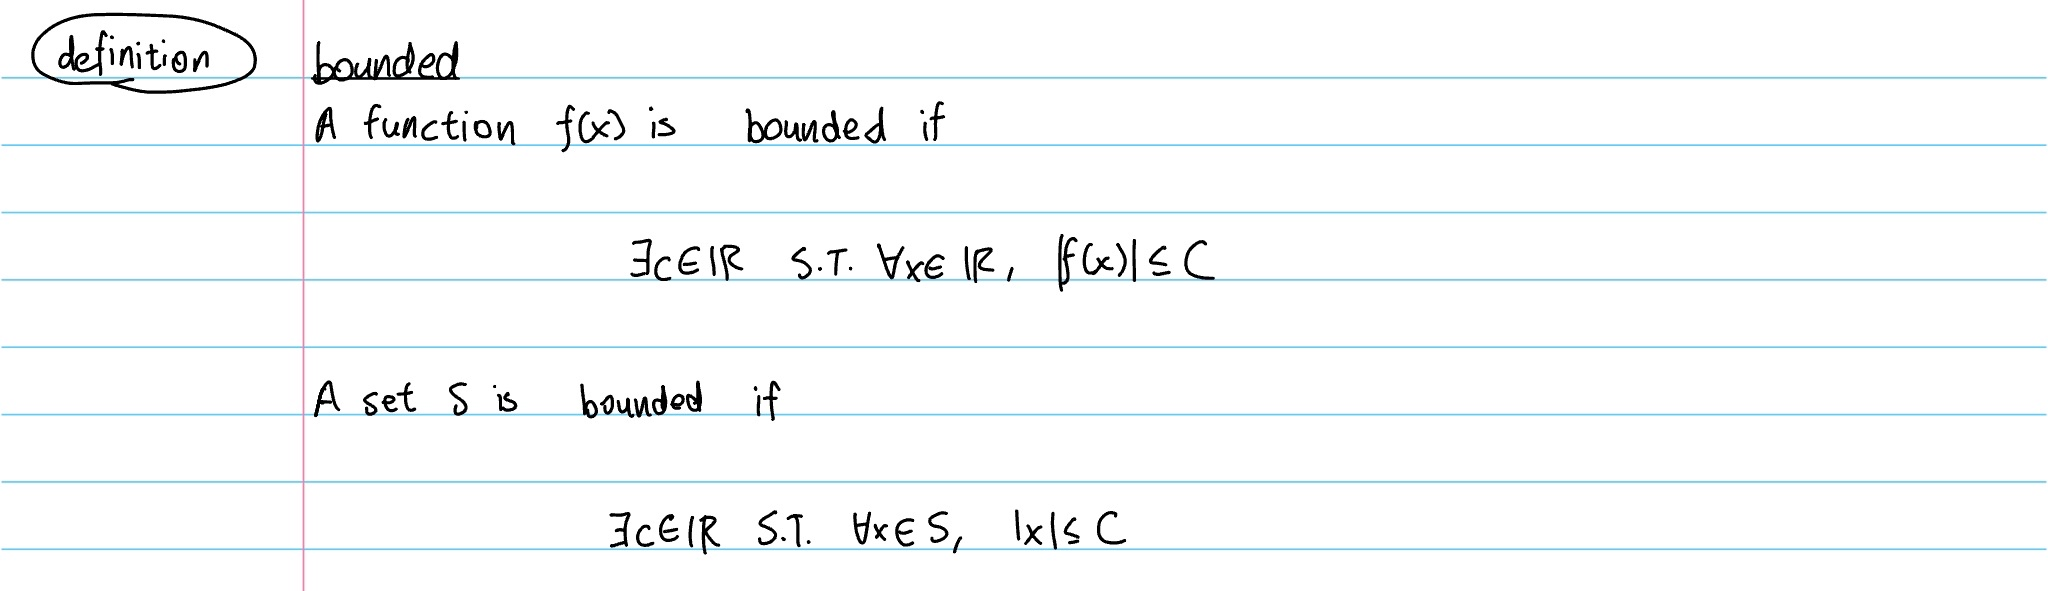 definition
bounded
A function f(x) is bounded if
∃c∈ℝ S.T. ∀x∈ℝ, |f(x)|≤C
A set S is bounded if
∃c∈ℝ S.T. ∀x∈S, |x|≤C